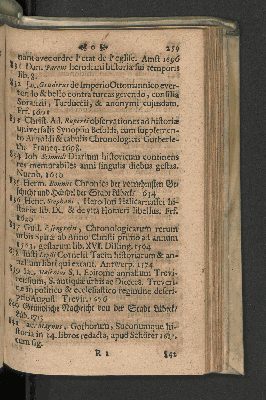 o 259
nant avec ordre l'etat de l'eglise. Amst 1696
Dan. Pareus herodiani historiae sui temporis
lib. 8.
832 Jac. de Imperio Ottomannico ever-
tendo & bello contra turcas gerendo, consilia
Soranzii, Tarduccii, & anonymi cujusdam.
Frf. 1601
833 Christ. Ad. Ruperti observationes ad historiae
universalis Synopsin Besoldi, cum supplemento
Arnoldi & tabulis Chronologicis
Franeq. 1698.
834 Joh Diarium historicum continens
res memorabiles anni singulis diebus gestas.
Nurnb. 1610
835 Herm. Bonnus Chronica der
und Händel der Stadt Lübeck
836 Henr. Stephani, Herodoti Halicarnassei hi-
storiae lib. IX. & de vita Homeri libellus. Frf.
1620
837 Guil. Chronologicarum rerum
urbis Spirae ab Anno Christi primo ad annum
gestarum lib. XVI. Dilling. 1564
Justi Lipsii Cornelii Taciti historiarum & an-
nalium libri qui extant. Antwerp. 1574
Jac. S. I. Epitome annalium Treviren-
sium, S. antiquae urbis ac Diœces. Treveri-
cae in politico & ecclesiastico regimine descri-
ptio August Trevir. 1676
Gründliche Nachricht von der Stadt Lübeck
Lüb. 1713
Jac. Magnus, Gothorum, Sueonumque hi-
storia in 24. libros redacta, apud Schürer 1617.
cum fig.
R 2 842